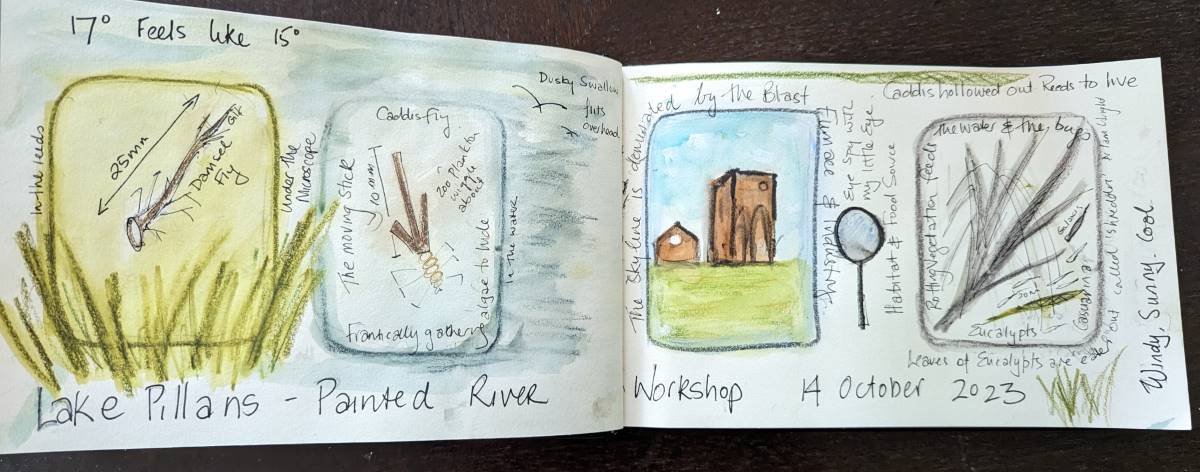 17° Feels like 15°
In the reeds
25mm
Gills
Damsel
Fly
Under the
Microscope
Caddis fly
The moving stick
10mm
200 Plankton
wiggle
about
Frantically gathering algae to hide
In the water
Dusky Swallow
flits
overhead
The Skyline is dominated by the Blast
Furnace & industry.
Eye spy with
my little Eye
Habitat & Food Source
Caddis hollowed out Reeds to live
The water & the bugs
Rotting Vegetation Feeds
Casuarina
Eucalypts
Leaves of Eucalypts are
out called shredders
Windy, Sunny. Cool
Lake Pillans - Painted River Workshop 14 October 2023